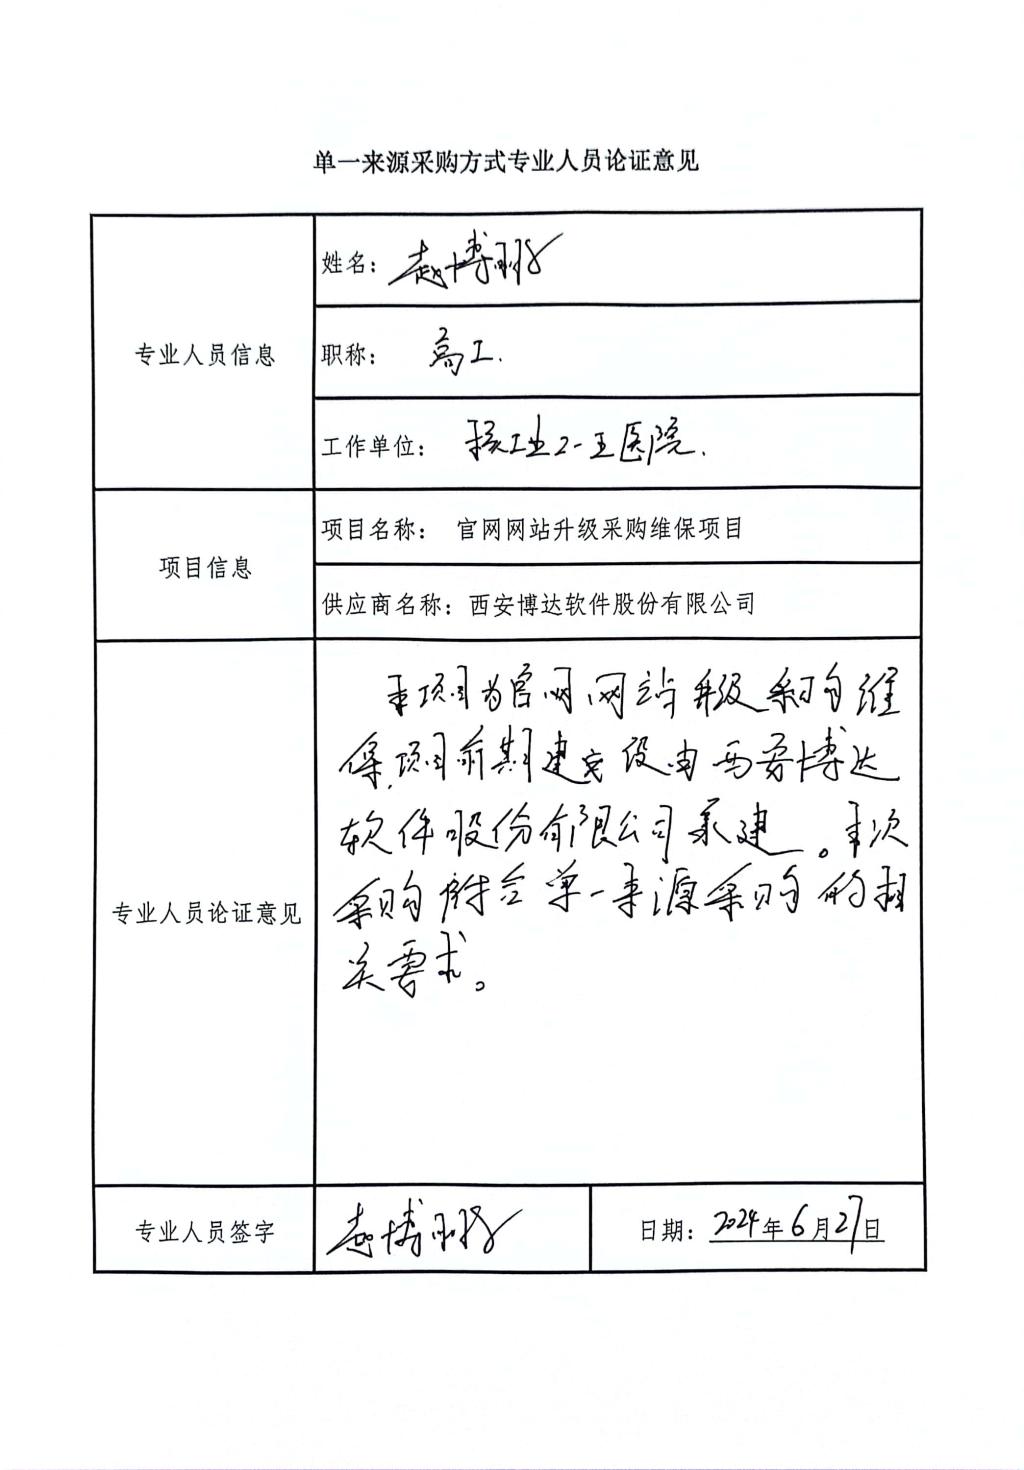 单一来源采购方式专业人员论证意见
专业人员信息
姓名：赵博鹏
职称：高工.
工作单位：核工业二一五医院.
项目信息
项目名称：官网网站升级采购维保项目
供应商名称：西安博达软件股份有限公司
专业人员论证意见
本项目为官网网站升级采购维
保项目前期建设由西安博达
软件股份有限公司承建。本次
采购符合单一来源采购的相
关要求。
专业人员签字
赵博鹏
日期：2024年6月27日